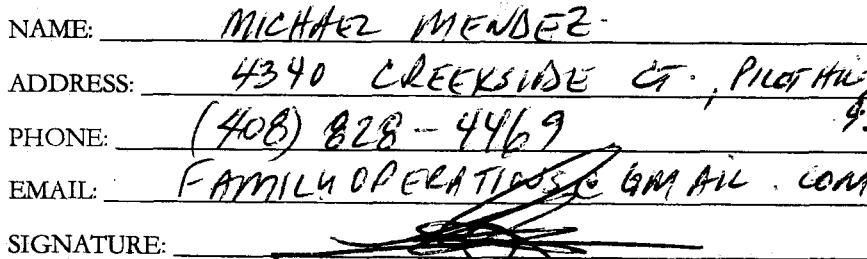 NAME: MICHAEL MENDEZ
ADDRESS: 4340 CREEKSIDE CT., PILOT HIL
PHONE: (408) 828-4469
EMAIL: FAMILYOPERATIONS@GMAIL.COM
SIGNATURE: